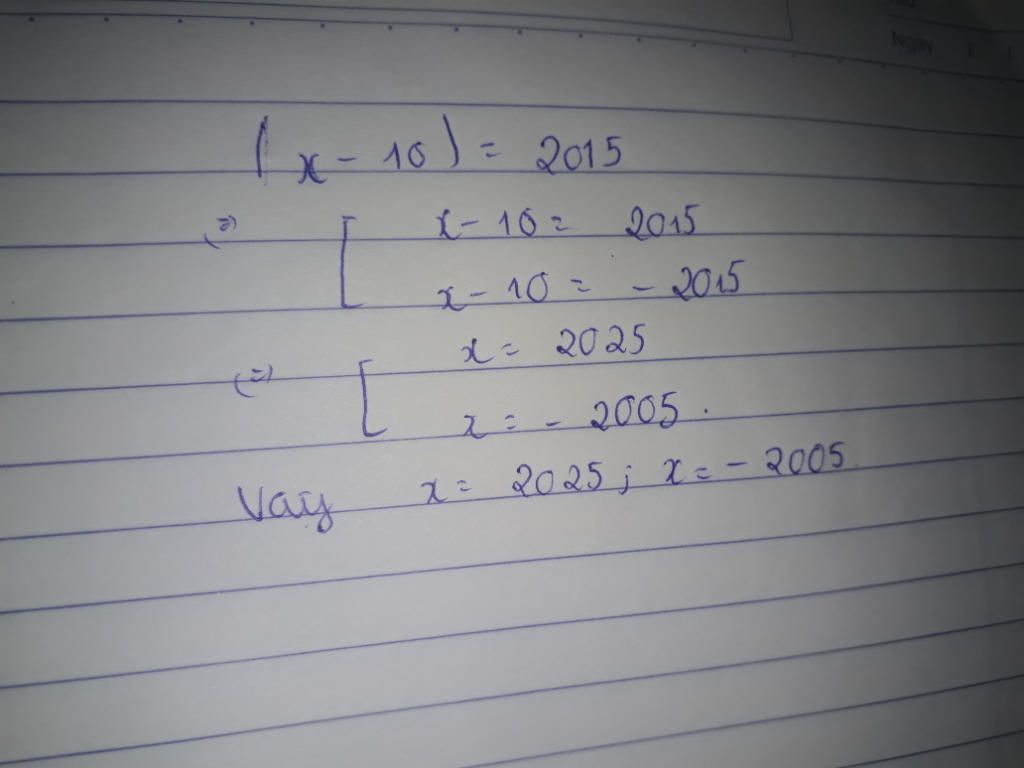 Ngày
|x - 10| = 2015
(=) [ x - 10 = 2015
x - 10 = - 2015
(=) [ x = 2025
x = - 2005.
Vay x = 2025; x = - 2005.